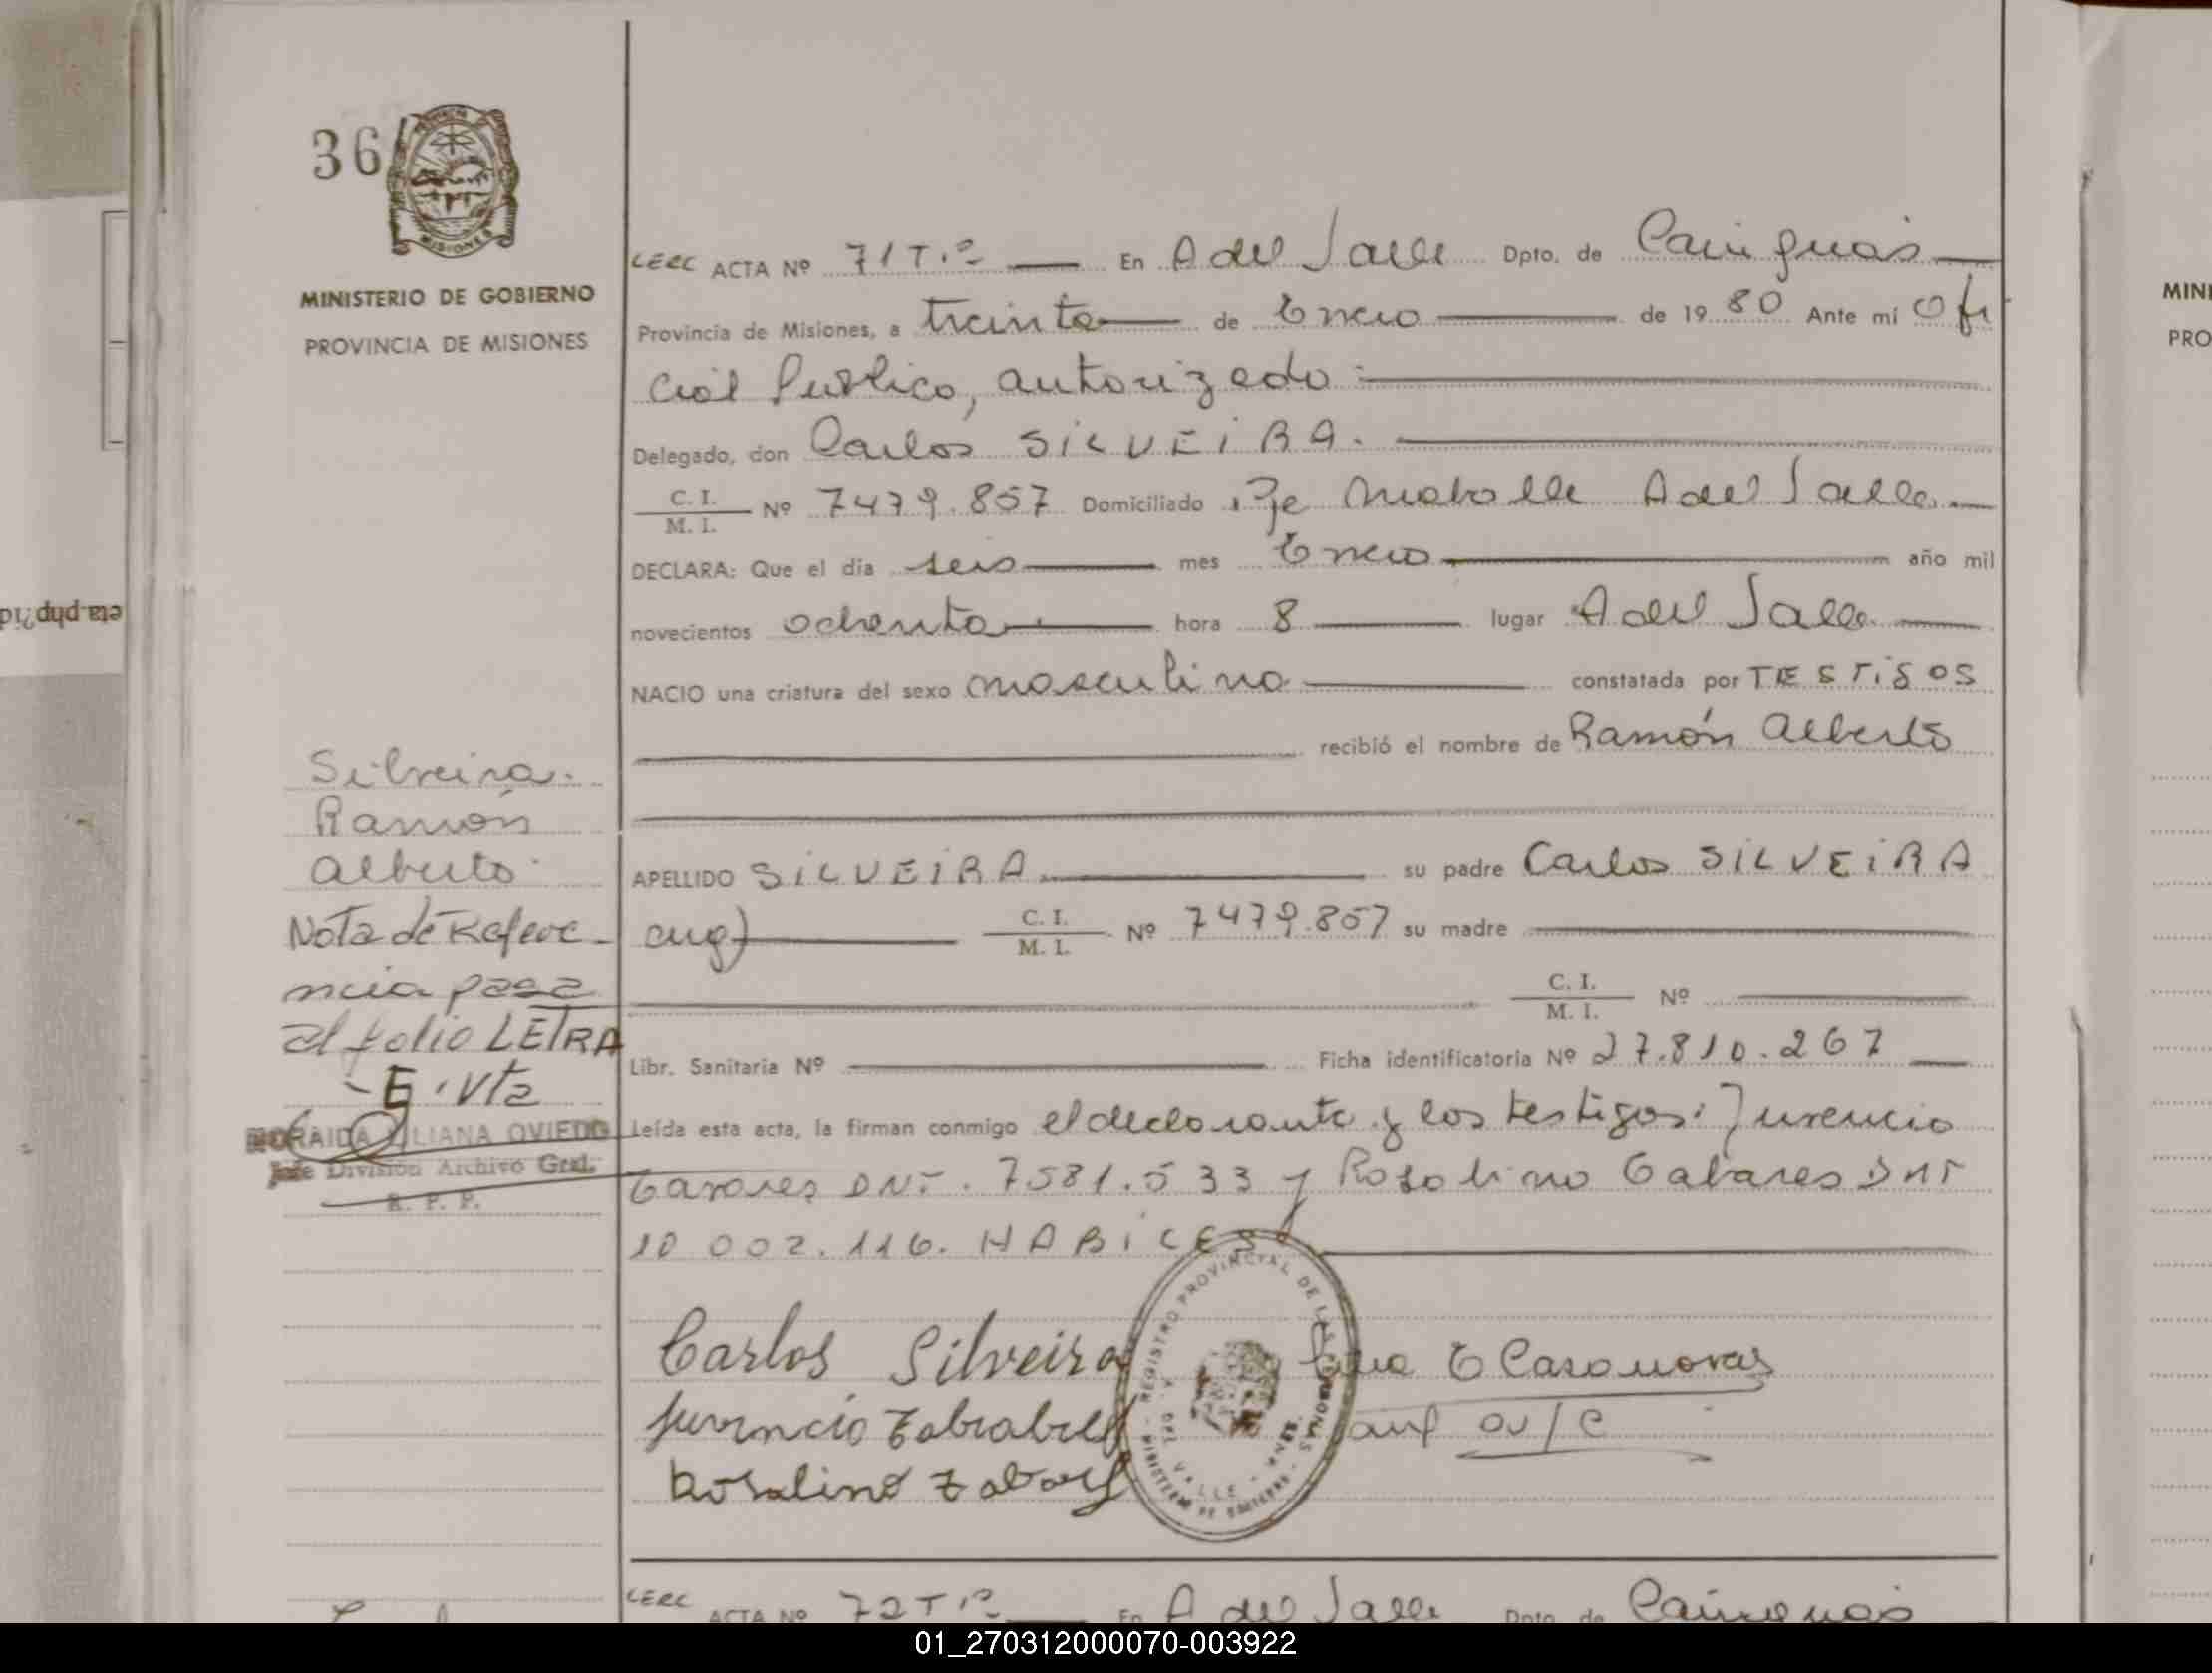 36
PROVINCIA DE MISIONES
MINISTERIO DE GOBIERNO
PROVINCIA DE MISIONES
CERC ACTA Nº 71 Tº 1º En A del Valle Dpto. de Cainguás
Provincia de Misiones, a treinta de Enero de 1980 Ante mi Ofi
cial Publico, autorizado:
Delegado, don Carlos SILVEIRA.
C. I. M. I. Nº 7479.857 Domiciliado A del Valle
DECLARA: Que el día seis mes Enero año mil
novecientos ochenta hora 8 lugar A del Valle
NACIO una criatura del sexo masculino constatada por TESTIGOS
recibió el nombre de Ramón Alberto
APELLIDO SILVEIRA su padre Carlos SILVEIRA
arg) C. I. M. I. Nº 7479.857 su madre
C. I. M. I. Nº
Libr. Sanitaria Nº Ficha identificatoria Nº 27.810.267
Leída esta acta, la firman conmigo el declarante y los testigos: Juvencio
Tavares DNI. 7581.533 y Rosolino Tabares DNI
10 002.116. HABILES
Carlos Silveira
Juvencio
Rosalino
E Casanovas
REGISTRO PROVINCIAL DE LAS PERSONAS
A DEL VALLE - MNES
MINISTERIO DE GOBIERNO
Silveira.
Ramón
Alberto.
Nota de Refere-
ncia pasa
al folio LETRA
- E. Vta
MORAIDA LILIANA OVIEDO
Jefe División Archivo Gral.
R. P. P.
CERC ACTA Nº 72 Tº 1º En A del Valle Dpto. de Cainguás
MINI
PRO
eta.php?id
01_270312000070-003922